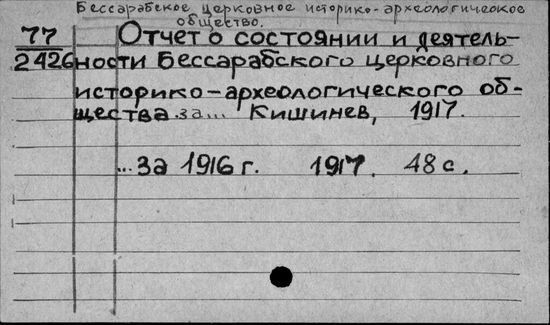 Бессарабское церковное историко-археологическое
общество.
77 Отчет о состоянии и деятель-
2426 ности Бессарабского церковного
историко-археологического об-
щества за... Кишинев, 1917.
...За 1916 г. 1917. 48 с.